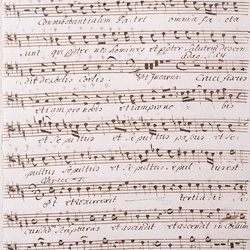 Consubstantialem Patri omnia fa cta
sunt qui propter nos homines et propter salutem descen
dit de coelis coelis Crucifixus
etiam pro nobis et iam pro no bis
et se pultus et sepultus passus et se
pultus sepultus et sepultus
et resurrexit tertia di e
secundum scripturas et ascendit et ascendit in coe